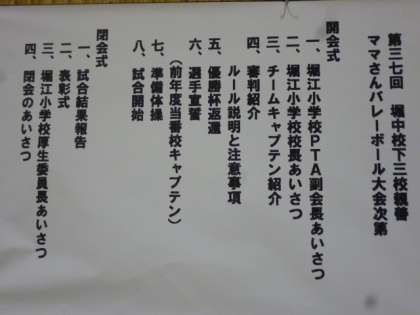 第三七回　堀中校下三校親善
ママさんバレーボール大会次第
開会式
一、堀江小学校ＰＴＡ副会長あいさつ
二、堀江小学校校長あいさつ
三、チームキャプテン紹介
四、審判紹介
ルール説明と注意事項
五、優勝杯返還
六、選手宣誓
（前年度当番校キャプテン）
七、準備体操
八、試合開始
閉会式
一、試合結果報告
二、表彰式
三、堀江小学校厚生委員長あいさつ
四、閉会のあいさつ